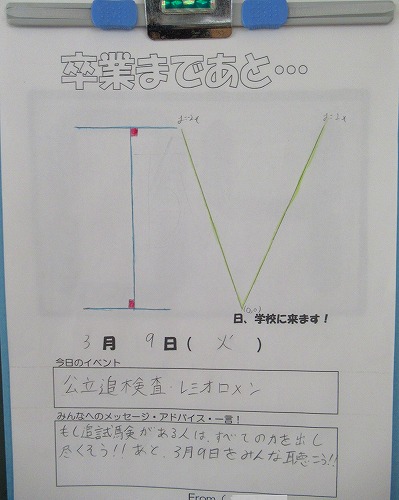 卒業まであと…
IV
y=-2x y=2x
(0,0)
日、学校に来ます！
3月 9日( 火 )
今日のイベント
公立追検査・レミオロメン
みんなへのメッセージ・アドバイス・一言！
もし追試験がある人は、すべての力を出し
尽くそう!!あと、3月9日をみんな聴こう!!
From (